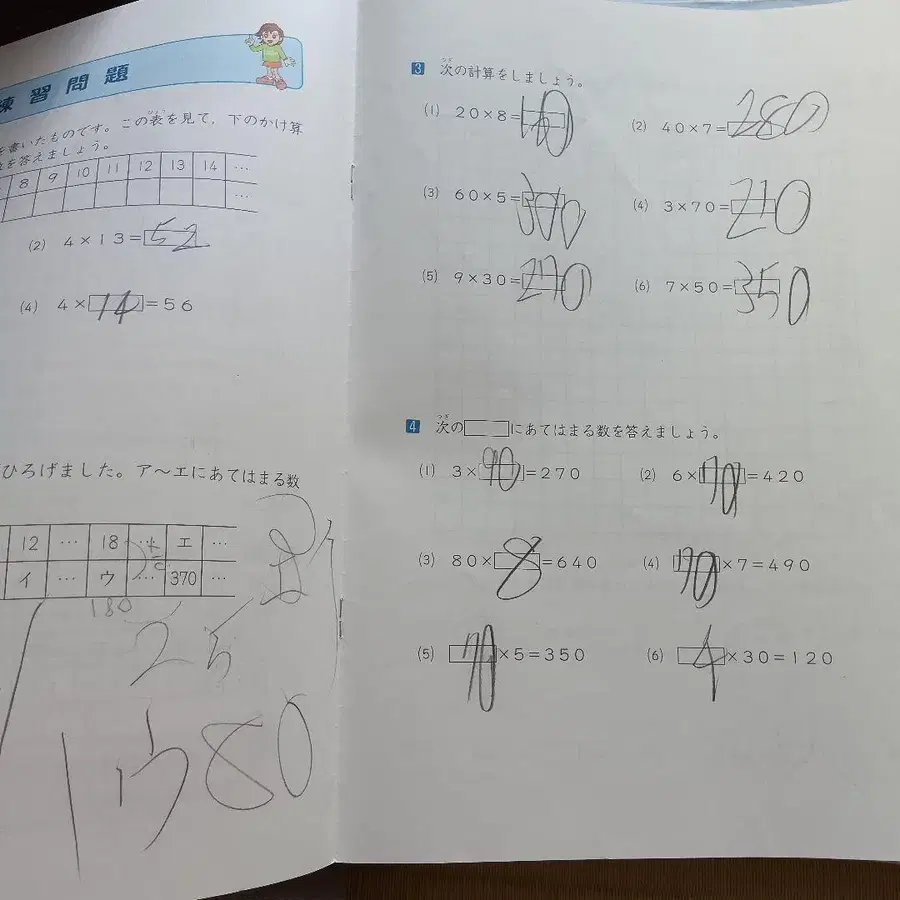 練習問題
を書いたものです。この表を見て，下のかけ算
を答えましょう。
8 9 10 11 12 13 14 …
…
(2) 4×13=52
(4) 4×14=56
ひろげました。ア～エにあてはまる数
12 … 18 … エ …
イ … ウ … 370 …
180
25
180
3 次の計算をしましょう。
(1) 20×8=160
(2) 40×7=280
(3) 60×5=300
(4) 3×70=210
(5) 9×30=270
(6) 7×50=350
4 次の□にあてはまる数を答えましょう。
(1) 3×90=270
(2) 6×70=420
(3) 80×8=640
(4) 70×7=490
(5) 70×5=350
(6) 4×30=120